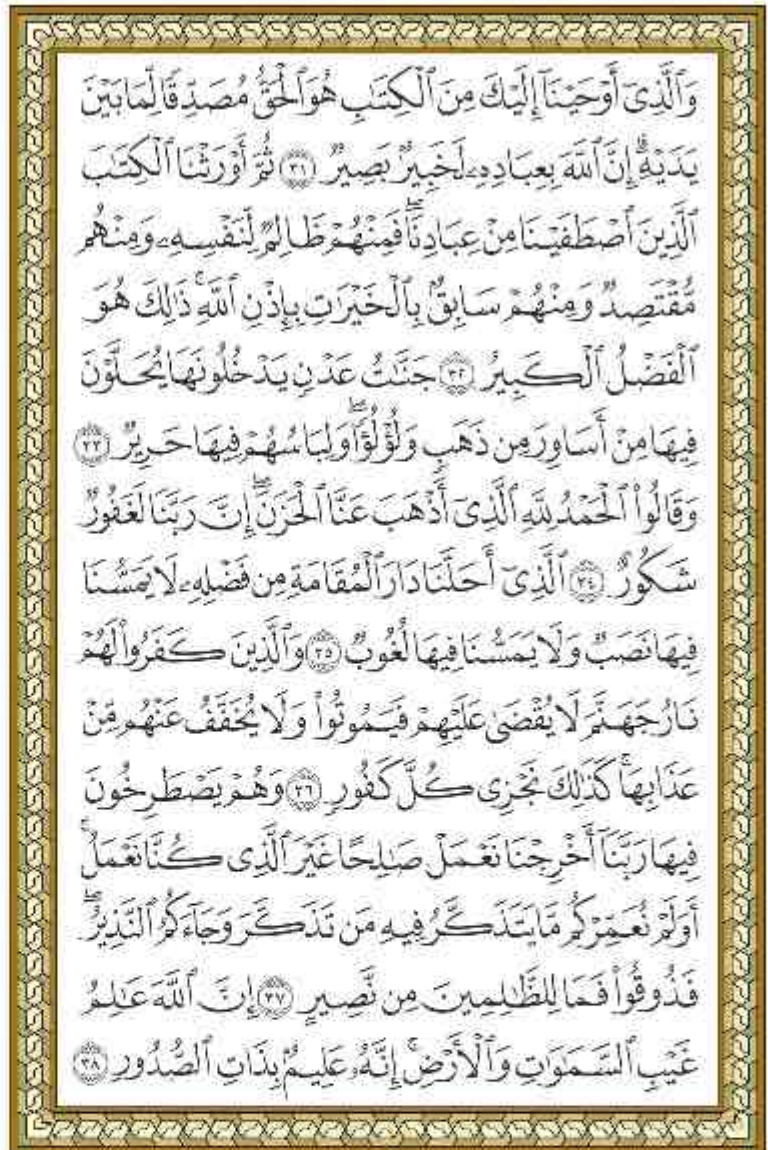 وَٱلَّذِىٓ أَوْحَيْنَآ إِلَيْكَ مِنَ ٱلْكِتَٰبِ هُوَ ٱلْحَقُّ مُصَدِّقًا لِّمَا بَيْنَ
يَدَيْهِ ۗ إِنَّ ٱللَّهَ بِعِبَادِهِۦ لَخَبِيرٌۢ بَصِيرٌ ﴿٣١﴾ ثُمَّ أَوْرَثْنَا ٱلْكِتَٰبَ
ٱلَّذِينَ ٱصْطَفَيْنَا مِنْ عِبَادِنَا ۖ فَمِنْهُمْ ظَالِمٌ لِّنَفْسِهِۦ وَمِنْهُم
مُّقْتَصِدٌ وَمِنْهُمْ سَابِقٌۢ بِٱلْخَيْرَٰتِ بِإِذْنِ ٱللَّهِ ۚ ذَٰلِكَ هُوَ
ٱلْفَضْلُ ٱلْكَبِيرُ ﴿٣٢﴾ جَنَّٰتُ عَدْنٍ يَدْخُلُونَهَا يُحَلَّوْنَ
فِيهَا مِنْ أَسَاوِرَ مِن ذَهَبٍ وَلُؤْلُؤًا ۖ وَلِبَاسُهُمْ فِيهَا حَرِيرٌ ﴿٣٣﴾
وَقَالُوا۟ ٱلْحَمْدُ لِلَّهِ ٱلَّذِىٓ أَذْهَبَ عَنَّا ٱلْحَزَنَ ۖ إِنَّ رَبَّنَا لَغَفُورٌ
شَكُورٌ ﴿٣٤﴾ ٱلَّذِىٓ أَحَلَّنَا دَارَ ٱلْمُقَامَةِ مِن فَضْلِهِۦ لَا يَمَسُّنَا
فِيهَا نَصَبٌ وَلَا يَمَسُّنَا فِيهَا لُغُوبٌ ﴿٣٥﴾ وَٱلَّذِينَ كَفَرُوا۟ لَهُمْ
نَارُ جَهَنَّمَ لَا يُقْضَىٰ عَلَيْهِمْ فَيَمُوتُوا۟ وَلَا يُخَفَّفُ عَنْهُم مِّنْ
عَذَابِهَا ۚ كَذَٰلِكَ نَجْزِى كُلَّ كَفُورٍ ﴿٣٦﴾ وَهُمْ يَصْطَرِخُونَ
فِيهَا رَبَّنَآ أَخْرِجْنَا نَعْمَلْ صَٰلِحًا غَيْرَ ٱلَّذِى كُنَّا نَعْمَلُ ۚ
أَوَلَمْ نُعَمِّرْكُم مَّا يَتَذَكَّرُ فِيهِ مَن تَذَكَّرَ وَجَآءَكُمُ ٱلنَّذِيرُ ۖ
فَذُوقُوا۟ فَمَا لِلظَّٰلِمِينَ مِن نَّصِيرٍ ﴿٣٧﴾ إِنَّ ٱللَّهَ عَٰلِمُ
غَيْبِ ٱلسَّمَٰوَٰتِ وَٱلْأَرْضِ ۚ إِنَّهُۥ عَلِيمٌۢ بِذَاتِ ٱلصُّدُورِ ﴿٣٨﴾